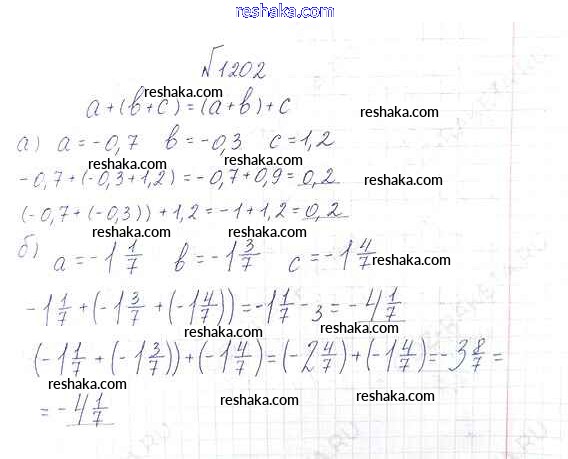 reshaka.com
№1202
reshaka.com
a+(b+c)=(a+b)+c reshaka.com
а) a=-0,7 b=-0,3 c=1,2
reshaka.com reshaka.com
-0,7+(-0,3+1,2)=-0,7+0,9=0,2 reshaka.com
(-0,7+(-0,3))+1,2=-1+1,2=0,2
reshaka.com reshaka.com
б) a=-1 1/7 b=-1 3/7 c=-1 4/7 reshaka.com
-1 1/7+(-1 3/7+(-1 4/7))=-1 1/7-3=-4 1/7
reshaka.com reshaka.com
(-1 1/7+(-1 3/7))+(-1 4/7)=(-2 4/7)+(-1 4/7)=-3 8/7=
reshaka.com reshaka.com reshaka.com
=-4 1/7